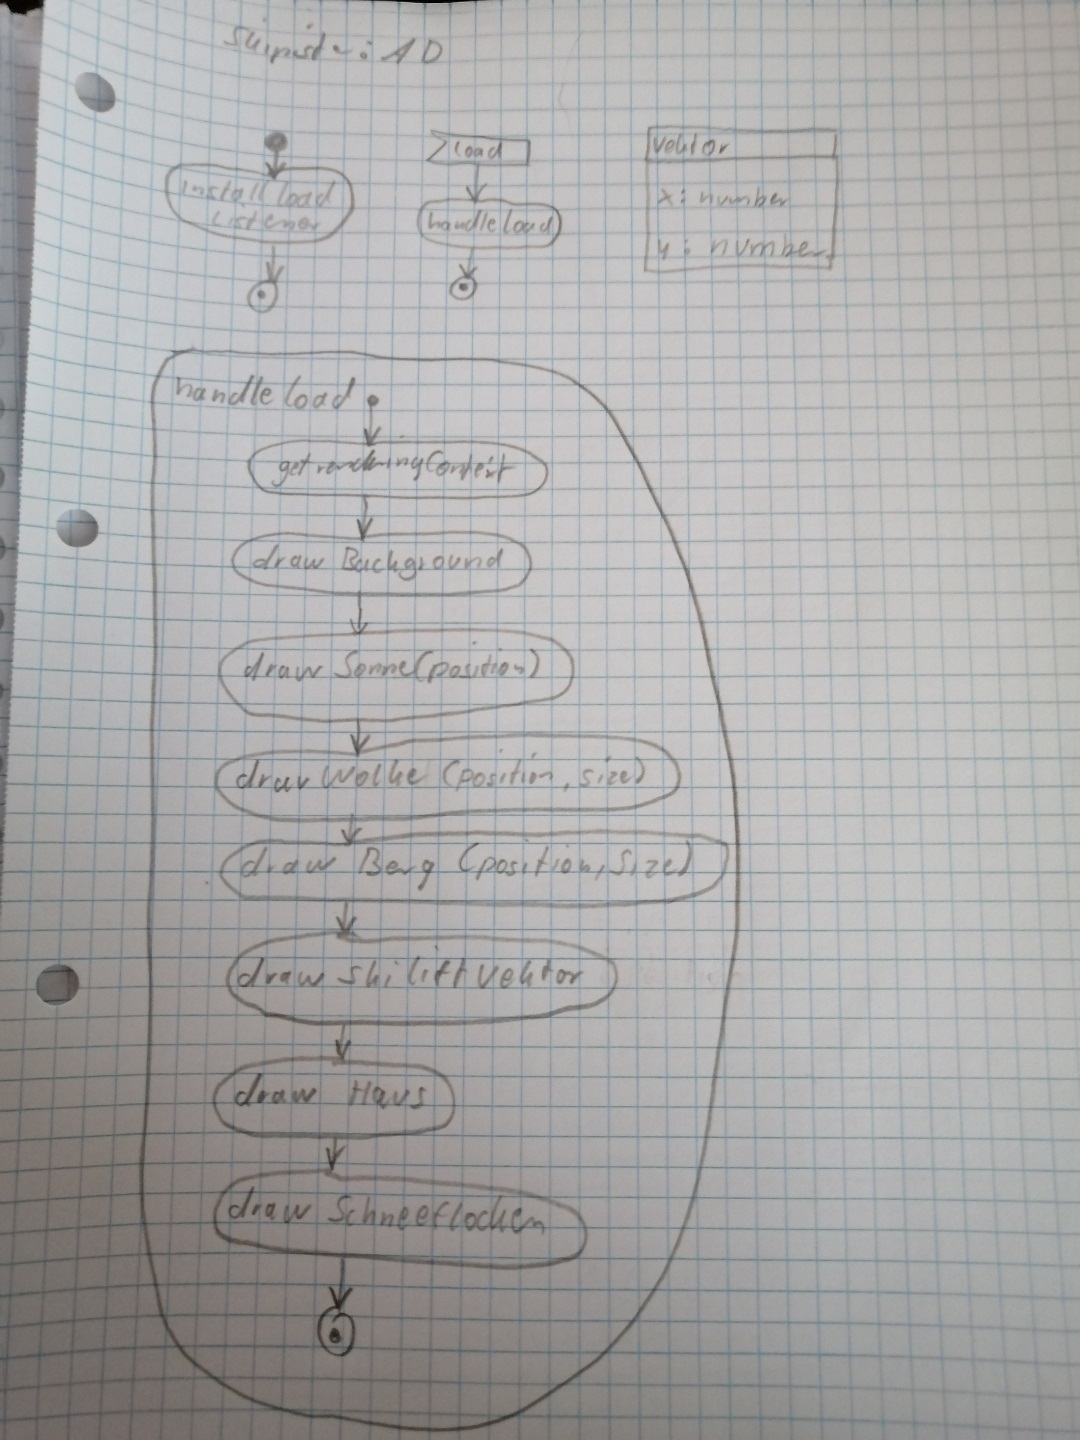 Skipiste: AD
install load
Listener
load
handleload
Vektor
x: number
y: number
handleload
getrenderingContext
draw Background
draw Sonne(position)
draw Wolke (position, size)
draw Berg (position, size)
draw Skilift Vektor
draw Haus
draw Schneeflocken